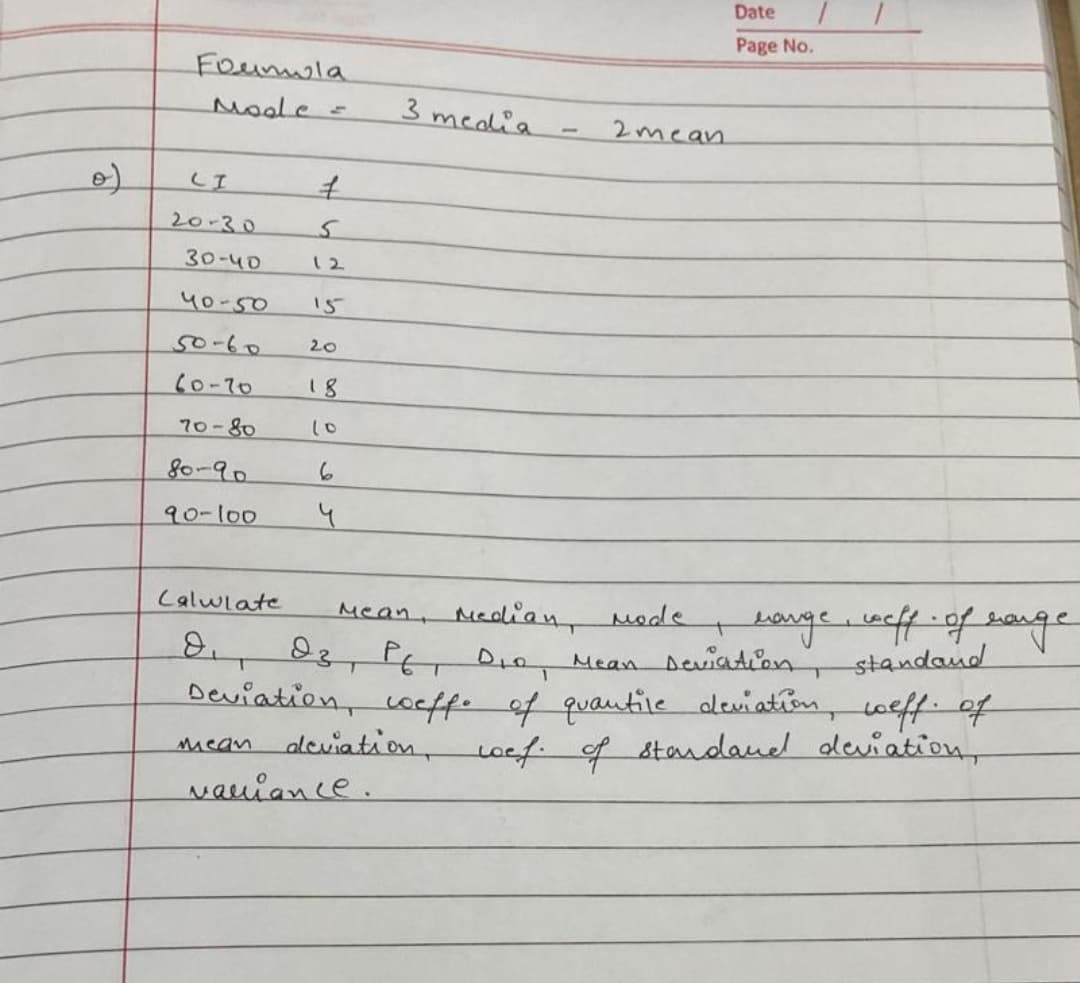 Date / /
Page No.
Formula
Mode = 3 media - 2 mean
Q) CI f
20-30 5
30-40 12
40-50 15
50-60 20
60-70 18
70-80 10
80-90 6
90-100 4
Calculate Mean, Median, Mode, range, coeff. of range
Q1, Q3, P6, D10, Mean Deviation, standard
Deviation, coeff. of quantile deviation, coeff. of
mean deviation, coef. of standard deviation,
variance.